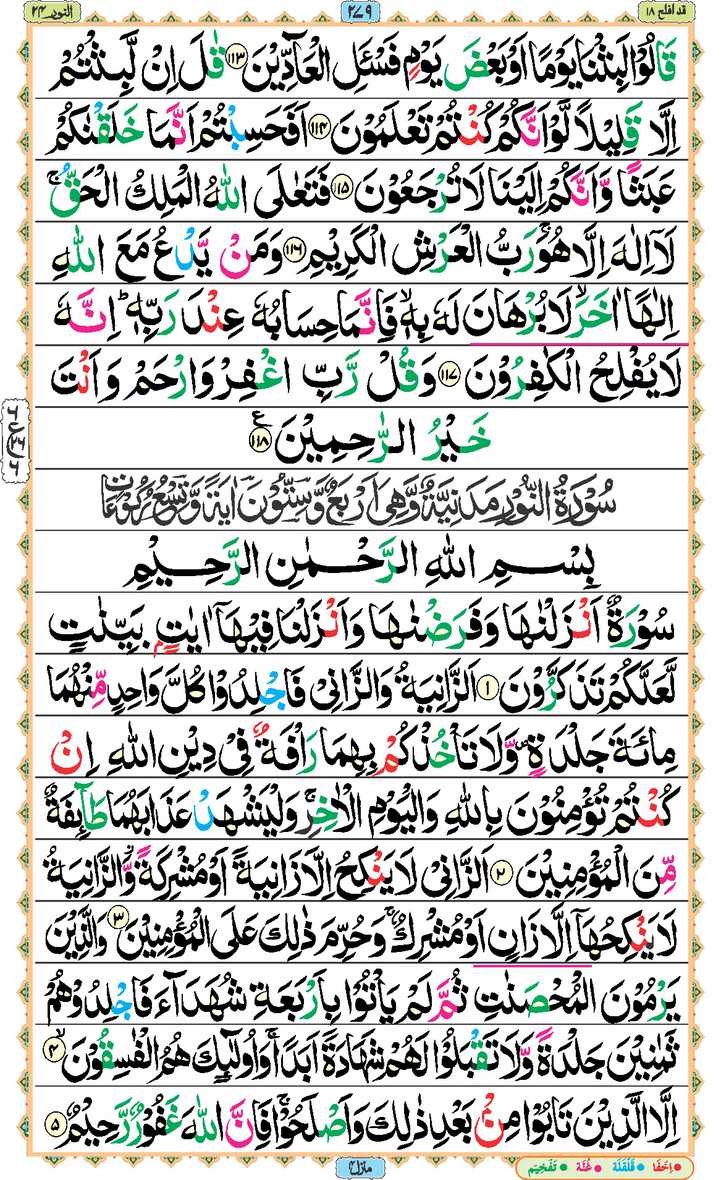 قد افلح ۱۸
۲۷۹
النور ۲۴
قَالُوْا لَبِثْنَا يَوْمًا اَوْ بَعْضَ يَوْمٍ فَسْـَٔلِ الْعَآدِّيْنَ ۝۱۱۳ قٰلَ اِنْ لَّبِثْتُمْ
اِلَّا قَلِيْلًا لَّوْ اَنَّكُمْ كُنْتُمْ تَعْلَمُوْنَ ۝۱۱۴ اَفَحَسِبْتُمْ اَنَّمَا خَلَقْنٰكُمْ
عَبَثًا وَّاَنَّكُمْ اِلَيْنَا لَا تُرْجَعُوْنَ ۝۱۱۵ فَتَعٰلَى اللّٰهُ الْمَلِكُ الْحَقُّ ۚ
لَاۤ اِلٰهَ اِلَّا هُوَ ۚ رَبُّ الْعَرْشِ الْكَرِيْمِ ۝۱۱۶ وَمَنْ يَّدْعُ مَعَ اللّٰهِ
اِلٰهًا اٰخَرَ ۙ لَا بُرْهَانَ لَهٗ بِهٖ ۙ فَاِنَّمَا حِسَابُهٗ عِنْدَ رَبِّهٖ ؕ اِنَّهٗ
لَا يُفْلِحُ الْكٰفِرُوْنَ ۝۱۱۷ وَقُلْ رَّبِّ اغْفِرْ وَارْحَمْ وَاَنْتَ
خَيْرُ الرّٰحِمِيْنَ ۝۱۱۸ ع
سُوْرَةُ النُّوْرِ مَدَنِيَّةٌ وَّهِىَ اَرْبَعٌ وَّسِتُّوْنَ اٰيَةً وَّتِسْعُ رُكُوْعَاتٍ
بِسْمِ اللّٰهِ الرَّحْمٰنِ الرَّحِيْمِ
سُوْرَةٌ اَنْزَلْنٰهَا وَفَرَضْنٰهَا وَاَنْزَلْنَا فِيْهَاۤ اٰيٰتٍۭ بَيِّنٰتٍ
لَّعَلَّكُمْ تَذَكَّرُوْنَ ۝۱ اَلزَّانِيَةُ وَالزَّانِىْ فَاجْلِدُوْا كُلَّ وَاحِدٍ مِّنْهُمَا
مِائَةَ جَلْدَةٍ ۪ وَّلَا تَاْخُذْكُمْ بِهِمَا رَاْفَةٌ فِىْ دِيْنِ اللّٰهِ اِنْ
كُنْتُمْ تُؤْمِنُوْنَ بِاللّٰهِ وَالْيَوْمِ الْاٰخِرِ ۚ وَلْيَشْهَدْ عَذَابَهُمَا طَآئِفَةٌ
مِّنَ الْمُؤْمِنِيْنَ ۝۲ اَلزَّانِىْ لَا يَنْكِحُ اِلَّا زَانِيَةً اَوْ مُشْرِكَةً ؗ وَّالزَّانِيَةُ
لَا يَنْكِحُهَاۤ اِلَّا زَانٍ اَوْ مُشْرِكٌ ۚ وَحُرِّمَ ذٰلِكَ عَلَى الْمُؤْمِنِيْنَ ۝۳ وَالَّذِيْنَ
يَرْمُوْنَ الْمُحْصَنٰتِ ثُمَّ لَمْ يَاْتُوْا بِاَرْبَعَةِ شُهَدَآءَ فَاجْلِدُوْهُمْ
ثَمٰنِيْنَ جَلْدَةً وَّلَا تَقْبَلُوْا لَهُمْ شَهَادَةً اَبَدًا ۚ وَاُولٰٓئِكَ هُمُ الْفٰسِقُوْنَ ۙ ۝۴
اِلَّا الَّذِيْنَ تَابُوْا مِنْۢ بَعْدِ ذٰلِكَ وَاَصْلَحُوْا ۚ فَاِنَّ اللّٰهَ غَفُوْرٌ رَّحِيْمٌ ۝۵
منزل ۴
اِخفَا • قَلْقَلَة • غُنَّة • تَفْخِيْم •